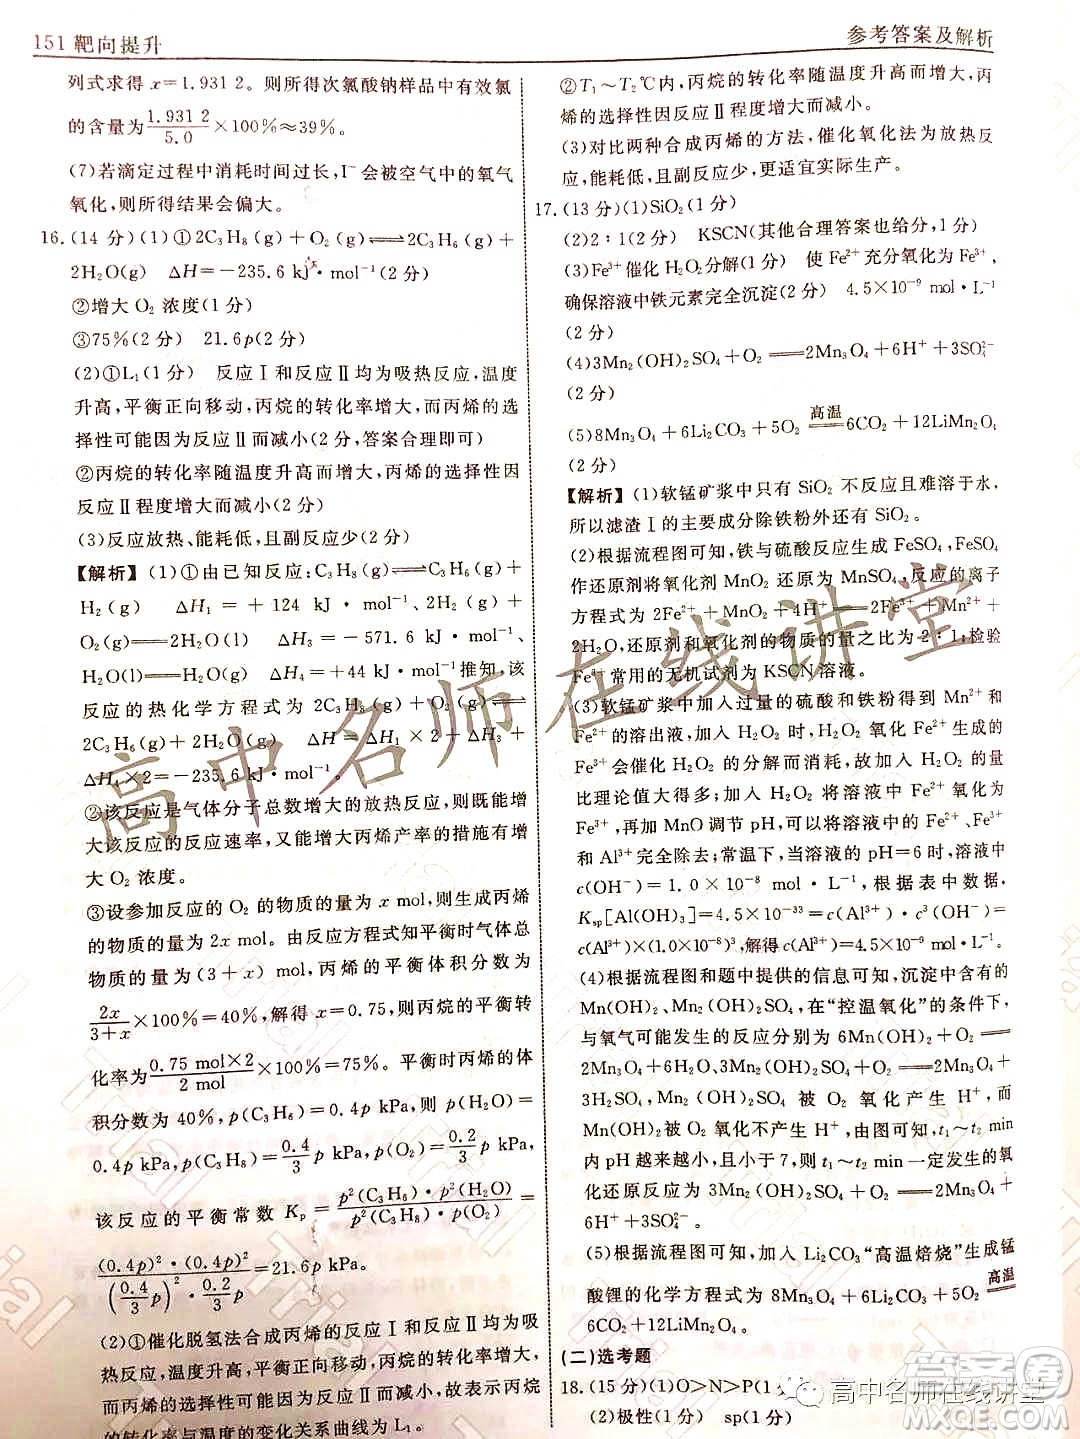 151 靶向提升
参考答案及解析
列式求得 x=1.931 2。则所得次氯酸钠样品中有效氯
的含量为1.931 2/5.0×100%≈39%。
(7)若滴定过程中消耗时间过长,I⁻会被空气中的氧气
氧化,则所得结果会偏大。
16.(14 分)(1)①2C₃H₈(g)+O₂(g)⇌2C₃H₆(g)+
2H₂O(g) ΔH=−235.6 kJ·mol⁻¹(2 分)
②增大 O₂ 浓度(1 分)
③75%(2 分) 21.6p(2 分)
(2)①L₁(1 分) 反应Ⅰ和反应Ⅱ均为吸热反应,温度
升高,平衡正向移动,丙烷的转化率增大,而丙烯的选
择性可能因为反应Ⅱ而减小(2 分,答案合理即可)
②丙烷的转化率随温度升高而增大,丙烯的选择性因
反应Ⅱ程度增大而减小(2 分)
(3)反应放热、能耗低,且副反应少(2 分)
【解析】(1)①由已知反应:C₃H₈(g)⇌C₃H₆(g)+
H₂(g) ΔH₁=+124 kJ·mol⁻¹、2H₂(g)+
O₂(g)══2H₂O(l) ΔH₃=−571.6 kJ·mol⁻¹、
H₂O(l)══H₂O(g) ΔH₄=+44 kJ·mol⁻¹推知,该
反应的热化学方程式为 2C₃H₈(g)+O₂(g)⇌
2C₃H₆(g)+2H₂O(g) ΔH=ΔH₁×2+ΔH₃+
ΔH₄×2=−235.6 kJ·mol⁻¹。
②该反应是气体分子总数增大的放热反应,则既能增
大该反应的反应速率,又能增大丙烯产率的措施有增
大 O₂ 浓度。
③设参加反应的 O₂ 的物质的量为 x mol,则生成丙烯
的物质的量为 2x mol。由反应方程式知平衡时气体总
物质的量为(3+x) mol,丙烯的平衡体积分数为
2x/(3+x)×100%=40%,解得 x=0.75,则丙烷的平衡转
化率为(0.75 mol×2)/(2 mol)×100%=75%。平衡时丙烯的体
积分数为 40%,p(C₃H₆)=0.4p kPa,则 p(H₂O)=
0.4p kPa,p(C₃H₈)=0.4/3 p kPa,p(O₂)=0.2/3 p kPa,
该反应的平衡常数 Kₚ=p²(C₃H₆)·p²(H₂O)/p²(C₃H₈)·p(O₂)=
(0.4p)²·(0.4p)²/(0.4/3 p)²·0.2/3 p=21.6p kPa。
(2)①催化脱氢法合成丙烯的反应Ⅰ和反应Ⅱ均为吸
热反应,温度升高,平衡正向移动,丙烷的转化率增大,而丙烯
的选择性可能因为反应Ⅱ而减小,故表示丙烷
的转化率与温度的变化关系曲线为 L₁。
②T₁~T₂℃时,丙烷的转化率随温度升高而增大,丙
烯的选择性因反应Ⅱ程度增大而减小。
(3)对比两种合成丙烯的方法,催化氧化法为放热反
应,能耗低,且副反应少,更适宜实际生产。
17.(13 分)(1)SiO₂(1 分)
(2)2∶1(2 分) KSCN(其他合理答案也给分,1 分)
(3)Fe³⁺催化 H₂O₂分解(1 分) 使 Fe²⁺充分氧化为 Fe³⁺
,确保溶液中铁元素完全沉淀(2 分) 4.5×10⁻⁹ mol·L⁻¹
(2 分)
(4)3Mn₂(OH)₂SO₄+O₂══2Mn₃O₄+6H⁺+3SO₄²⁻
(2 分)
(5)8Mn₃O₄+6Li₂CO₃+5O₂ 高温══ 6CO₂+12LiMn₂O₄
(2 分)
【解析】(1)软锰矿浆中只有 SiO₂ 不反应且难溶于水,
所以滤渣Ⅰ的主要成分除铁粉外还有 SiO₂。
(2)根据流程图可知,铁与硫酸反应生成 FeSO₄,FeSO₄
作还原剂将氧化剂 MnO₂ 还原为 MnSO₄,反应的离子
方程式为 2Fe²⁺+MnO₂+4H⁺══2Fe³⁺+Mn²⁺+
2H₂O,还原剂和氧化剂的物质的量之比为 2∶1;检验
Fe³⁺常用的无机试剂为 KSCN 溶液。
(3)软锰矿浆中加入过量的硫酸和铁粉得到 Mn²⁺和
Fe²⁺的溶出液,加入 H₂O₂ 时,可将溶液中 Fe²⁺氧化成
Fe³⁺,但由于生成的 Fe³⁺会催化 H₂O₂ 分解,故实际消耗量
比理论值大得多;加入 H₂O₂ 使溶液中 Fe²⁺氧化为
Fe³⁺,再加 MnO 调节 pH,可以将溶液中的 Fe²⁺、Fe³⁺
和 Al³⁺完全除去;常温下,当溶液的 pH=6 时,溶液中
c(OH⁻)=1.0×10⁻⁸ mol·L⁻¹,根据表中数据,
Kₛₚ[Al(OH)₃]=4.5×10⁻³³=c(Al³⁺)×c³(OH⁻)=
c(Al³⁺)×(1.0×10⁻⁸)³,解得 c(Al³⁺)=4.5×10⁻⁹ mol·L⁻¹。
(4)根据流程图和题中提供的信息可知,沉淀中含有的
Mn(OH)₂、Mn₂(OH)₂SO₄,在“控温氧化”的条件下,
与氧气可能发生的反应分别为 6Mn(OH)₂+O₂══
2Mn₃O₄+6H₂O、3Mn₂(OH)₂SO₄+O₂══2Mn₃O₄+
3H₂SO₄,Mn₂(OH)₂SO₄ 被 O₂ 氧化产生 H⁺,而
Mn(OH)₂ 被 O₂ 氧化不产生 H⁺,由图可知,t₁~t₂ min
内 pH 越来越小,且小于 7,则 t₁~t₂ min 一定发生的氧
化还原反应为 3Mn₂(OH)₂SO₄+O₂══2Mn₃O₄+
6H⁺+3SO₄²⁻。
(5)根据流程图可知,加入 Li₂CO₃“高温焙烧”生成锰
酸锂的化学方程式为 8Mn₃O₄+6Li₂CO₃+5O₂ 高温══
6CO₂+12LiMn₂O₄。
(二)选考题
18.(15 分)(1)O>N>P(1 分)
(2)极性(1 分) sp(1 分)
高中名师在线讲堂
高中名师在线讲堂
答案圈
MXQE.COM
Trial